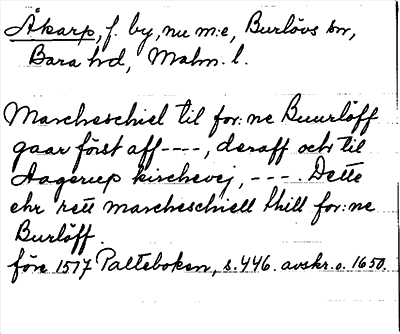 Åkarp, f. by, nu m:e, Burlövs sn,
Bara hd, Malm. l.
Marcheschiel til for:ne Buurlöff
gaar först aff ----, deraff och til
Aagerup kirchevej, ---. Dette
ehr rett marcheschiell thill for:ne
Burlöff.
före 1577 Palteboken, s. 446. avskr. o. 1650.